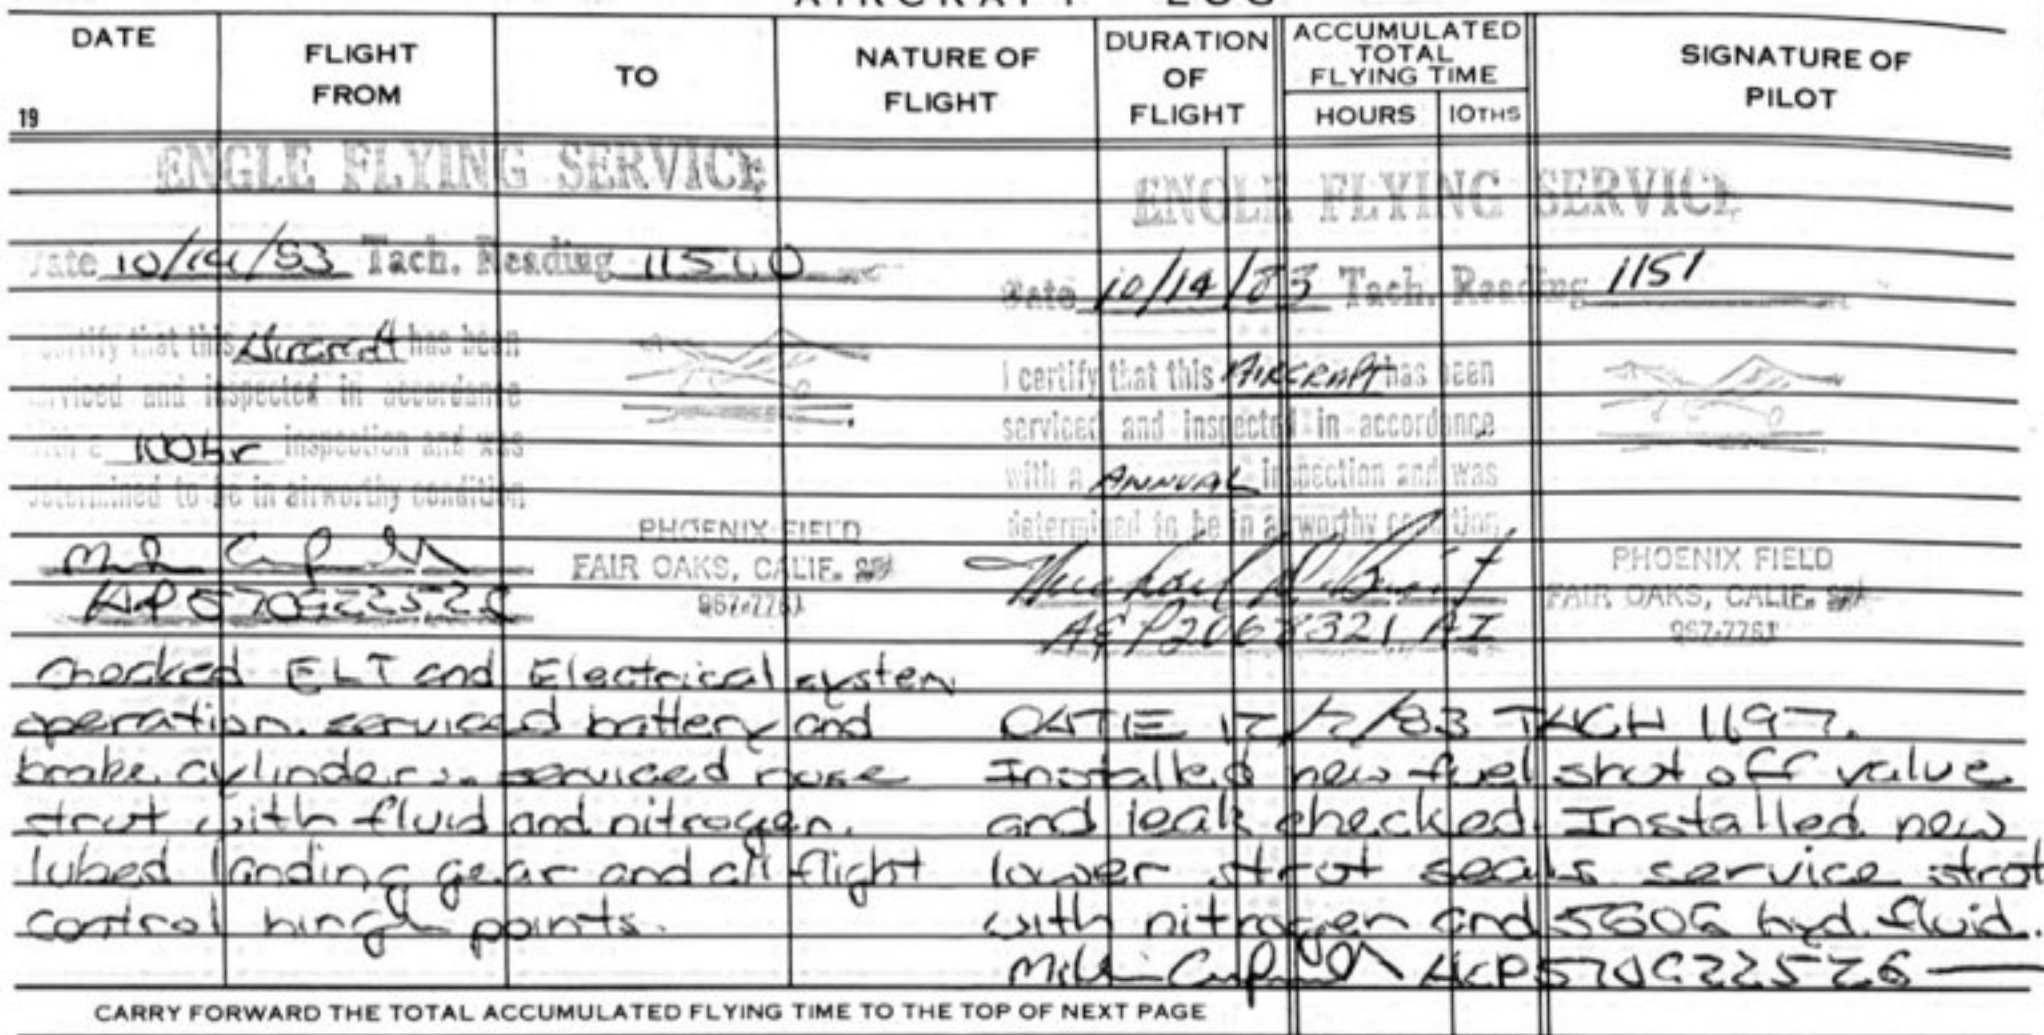 AIRCRAFT LOG
DATE
19
FLIGHT
FROM
TO
NATURE OF
FLIGHT
DURATION
OF
FLIGHT
ACCUMULATED
TOTAL
FLYING TIME
HOURS 10THS
SIGNATURE OF
PILOT
ENGLE FLYING SERVICE
Date 10/14/83 Tach. Reading 1151.0
I certify that this Aircraft has been
serviced and inspected in accordance
with a 100hr inspection and was
determined to be in airworthy condition
PHOENIX FIELD
FAIR OAKS, CALIF.
967-7761
checked ELT and Electrical system
operation. serviced battery and
brake cylinders. serviced nose
strut with fluid and nitrogen.
lubed landing gear and all flight
control hingh points.
ENGLE FLYING SERVICE
Date 10/14/83 Tach. Reading 1151
I certify that this AIRCRAFT has been
serviced and inspected in accordance
with a ANNUAL inspection and was
determined to be in airworthy condition
Michael
A&P2068321 AI
PHOENIX FIELD
FAIR OAKS, CALIF.
967-7761
DATE 12/7/83 TACH 1197.
Installed new fuel shut off value
and leak checked. Installed new
lower strut seals service strut
with nitrogen and 5606 hyd. fluid.
A&P570922526
CARRY FORWARD THE TOTAL ACCUMULATED FLYING TIME TO THE TOP OF NEXT PAGE